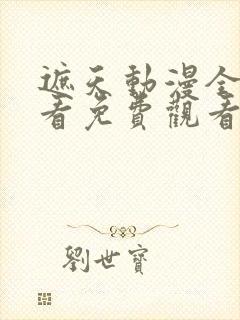 遮天動漫全
看免費觀看
劉世寶